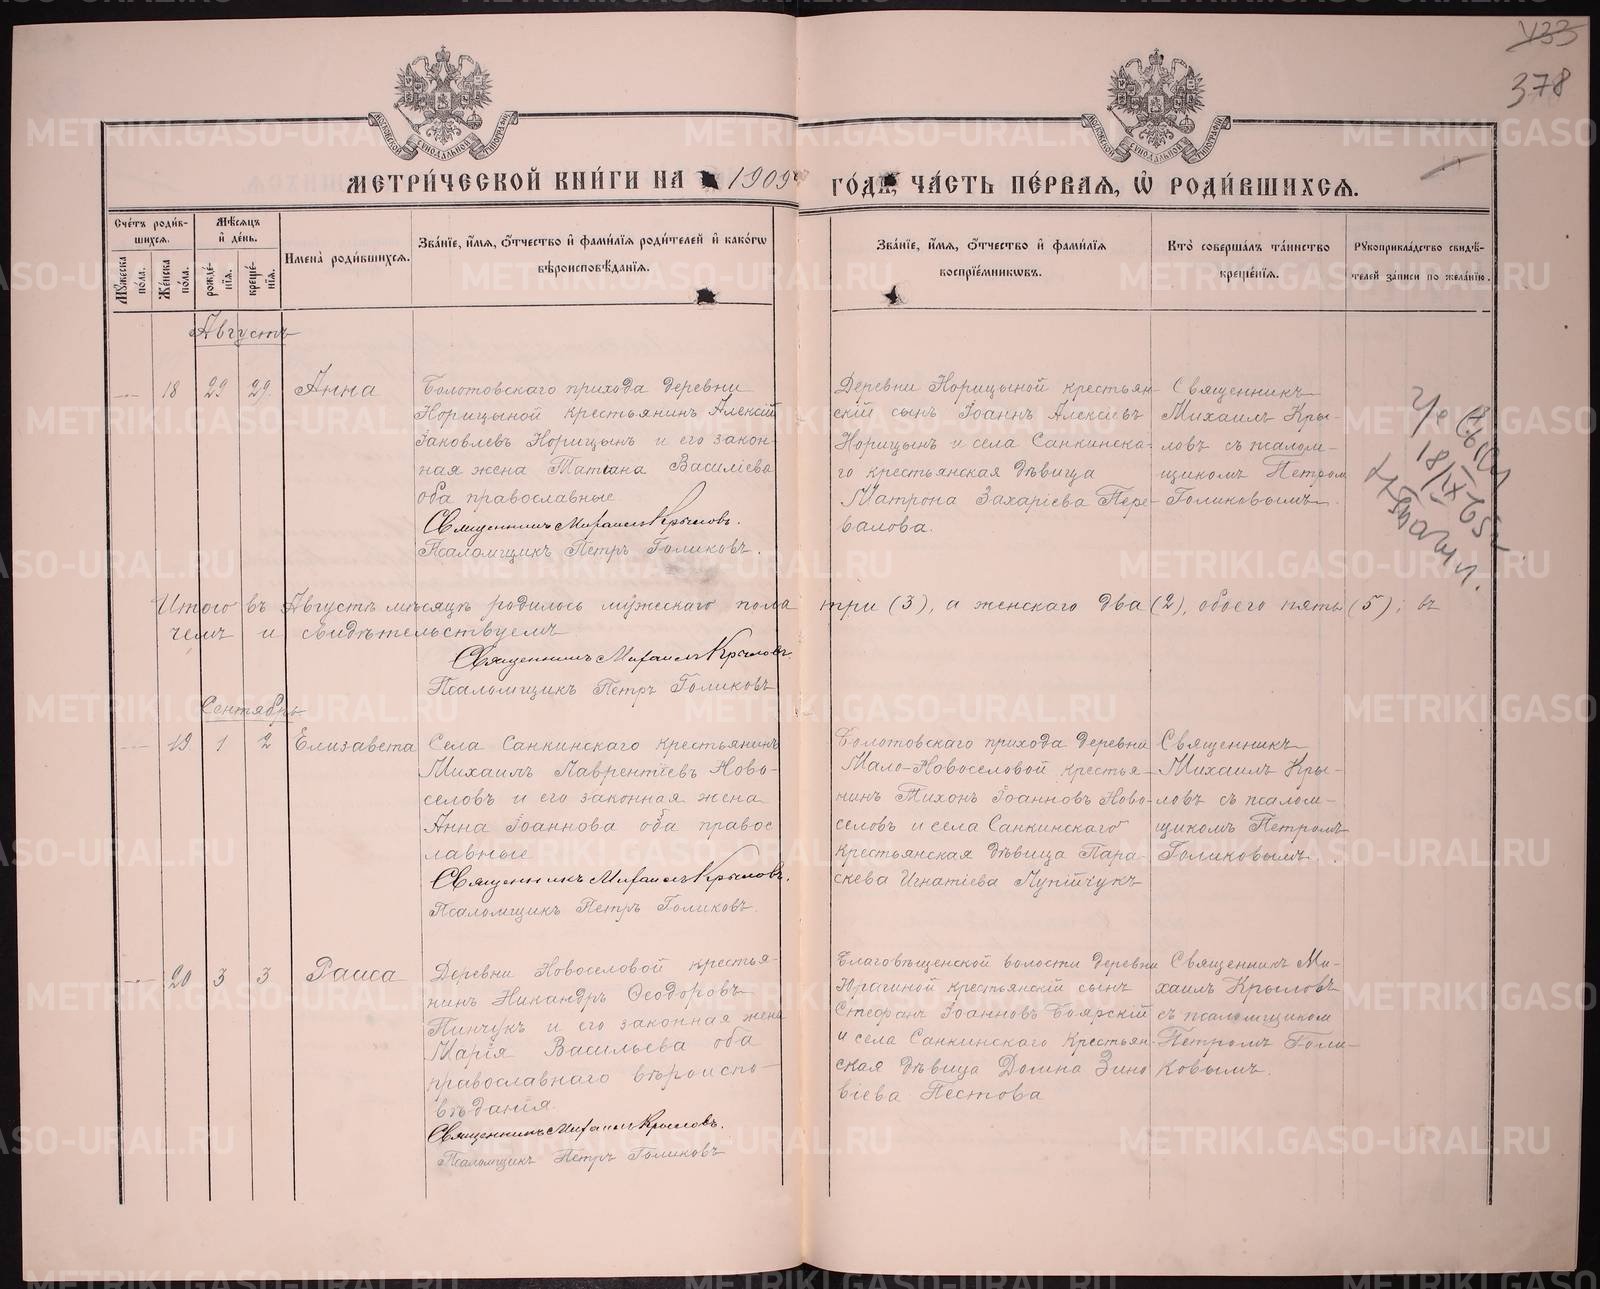 433
378
МОСКОВСКОЙ СѴНОДАЛЬНОЙ ТИПОГРАФІИ
МОСКОВСКОЙ СѴНОДАЛЬНОЙ ТИПОГРАФІИ
МЕТРИ́ЧЕСКОЙ КНИ́ГИ НА 1909й ГО́ДЪ, ЧА́СТЬ ПЕ́РВАѦ, Ѡ҆ РОДИ́ВШИХСѦ.
Сче́тъ роди́в-
шихсѧ.
Мѣ́сѧцъ
и҆ де́нь.
Мꙋ́жеска
по́ла.
Же́нска
по́ла.
рожде́-
нїѧ.
креще́-
нїѧ.
Имена̀ роди́вшихсѧ.
Зва́нїе, и҆́мѧ, ѻ҆́тчество и҆ фами́лїѧ роди́телей и҆ како́гѡ
вѣроисповѣ́данїѧ.
Зва́нїе, и҆́мѧ, ѻ҆́тчество и҆ фами́лїѧ
воспрїе́мникѡвъ.
Кто̀ соверша́лъ та́инство
креще́нїѧ.
Рꙋкоприкла́дство свидѣ́-
телей за́писи по жела́нїю.
Августъ
18 29 29 Анна
Болотовскаго прихода деревни
Норицыной крестьянинъ Алексій
Іаковлевъ Норицынъ и его закон-
ная жена Татіана Василіева
оба православные
Священникъ Михаилъ Крыловъ.
Псаломщикъ Петръ Голиковъ.
Деревни Норицыной крестьян-
скій сынъ Іоаннъ Алексіевъ
Норицынъ и села Санкинска-
го крестьянская дѣвица
Матрона Захаріева Пере-
валова.
Священникъ
Михаилъ Кры-
ловъ съ псалом-
щикомъ Петром
Голиковымъ.
18/IX 65
Итого въ Августѣ мѣсяцѣ родилось мужескаго пола три (3), а женскаго два (2), обоего пять (5); въ
чемъ и свидѣтельствуемъ
Священникъ Михаилъ Крыловъ.
Псаломщикъ Петръ Голиковъ
Сентябрь
19 1 2 Елизавета
Села Санкинскаго крестьянинъ
Михаилъ Лаврентіевъ Ново-
селовъ и его законная жена
Анна Іоаннова оба правос
лавные
Священникъ Михаилъ Крыловъ.
Псаломщикъ Петръ Голиковъ.
Болотовскаго прихода деревни
Мало-Новоселовой крестья-
нинъ Тихонъ Іоанновъ Ново-
селовъ и села Санкинскаго
крестьянская дѣвица Пара-
скева Игнатіева Лупійчукъ
Священникъ
Михаилъ Кры-
ловъ съ псалом-
щикомъ Петромъ
Голиковымъ.
20 3 3 Раиса
Деревни Новоселовой крестья-
нинъ Никандръ Ѳеодоровъ
Пинчукъ и его законная жена
Марія Васильева оба
православнаго вѣроиспо-
вѣданія.
Священникъ Михаилъ Крыловъ.
Псаломщикъ Петръ Голиковъ
Благовѣщенской волости деревни
Юрагиной крестьянскій сынъ
Стефанъ Іоанновъ Боярскій
и села Санкинскаго крестьян-
ская дѣвица Домна Зино
віева Пестова
Священникъ Ми-
хаилъ Крыловъ
съ псаломщиком
Петромъ Голи-
ковымъ.
METRIKI.GASO-URAL.RU